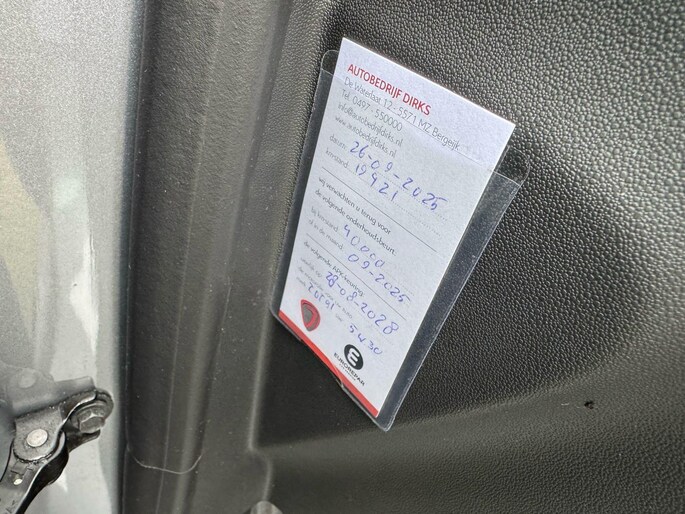 AUTOBEDRIJF DIRKS
De Waterlaat 12 - 5571 MZ Bergeijk
Tel. 0497 - 550000
info@autobedrijfdirks.nl
www.autobedrijfdirks.nl
datum: 26-09-2025
kmstand: 19421
wij verwachten u terug voor
de volgende onderhoudsbeurt:
bij kmstand: 40000
of in de maand: 09-2025
de volgende APK-keuring
uiterlijk op: 28-08-2028
5W30
EUROREPAR